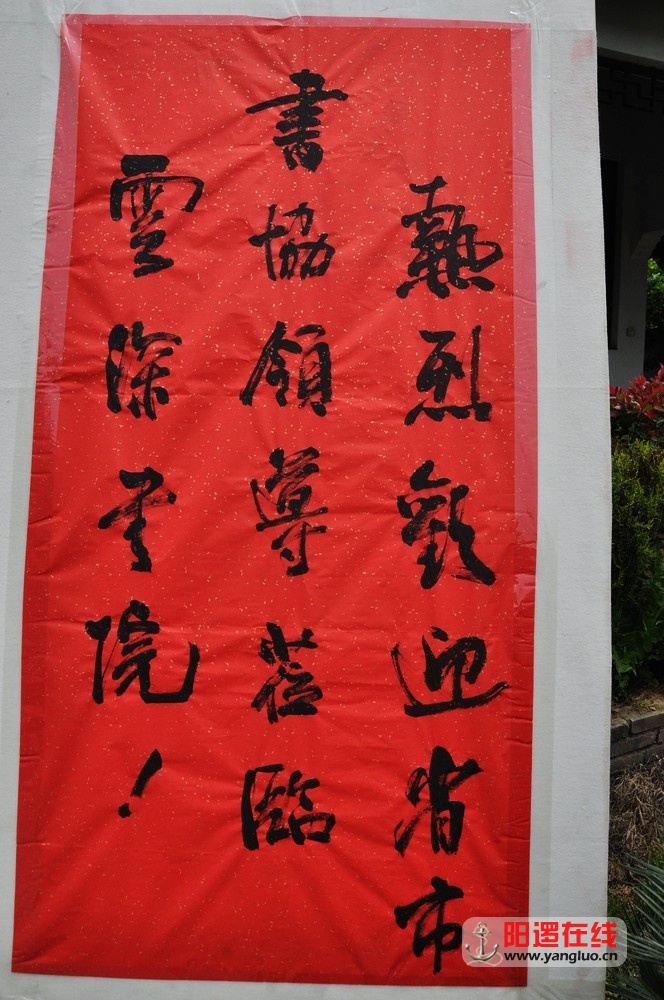 熱烈歡迎省市
書協領導莅臨
雲深書院！
阳逻在线
www.yangluo.cn